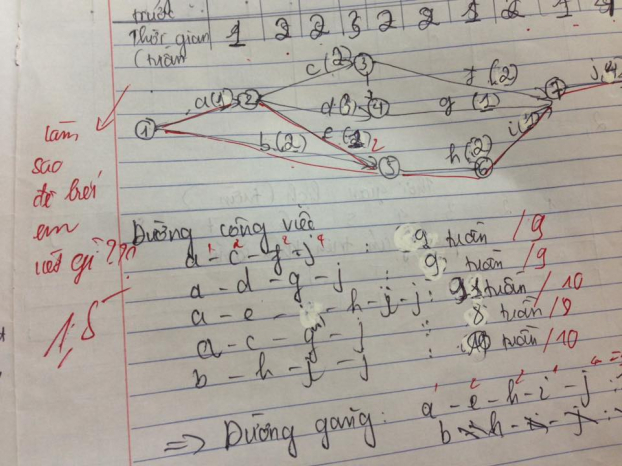 trước
Thời gian 1 2 2 3 2 2 1 2 1 4
(tuần
a(1) 2 c(2) 3 f(2) 7 j(4)
d(3) 4 g(1)
1 b(2) e(2) 2 5 h(2) 6
làm
sao
để biết
em
viết gì???
1,5
Đường công việc
a - c - f - j : 9 tuần / 9
a - d - g - j : 9 tuần / 9
a - e - h - i - j : tuần / 10
a - c - g - j : 8 tuần / 8
b - h - i - j : tuần / 10
=> Đường găng: a - e - h - i - j
b - h - i - j